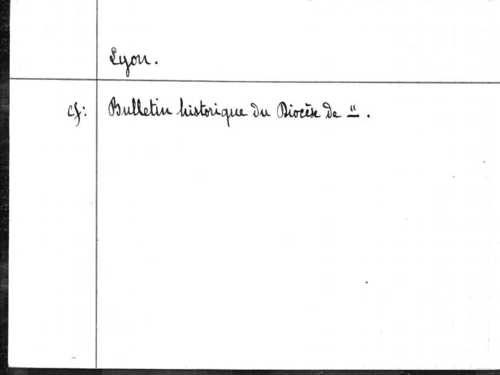 Lyon.
cf: Bulletin historique du Diocèse de ".